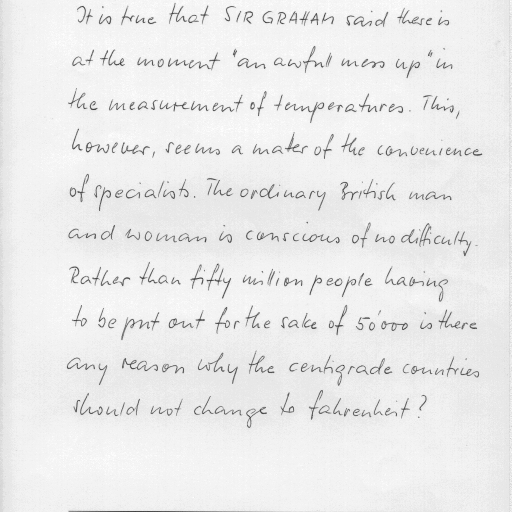 It is true that SIR GRAHAM said there is
at the moment "an awfull mess up" in
the measurement of temperatures. This,
however, seems a matter of the convenience
of specialists. The ordinary British man
and woman is conscious of no difficulty.
Rather than fifty million people having
to be put out for the sake of 50'000 is there
any reason why the centigrade countries
should not change to fahrenheit?